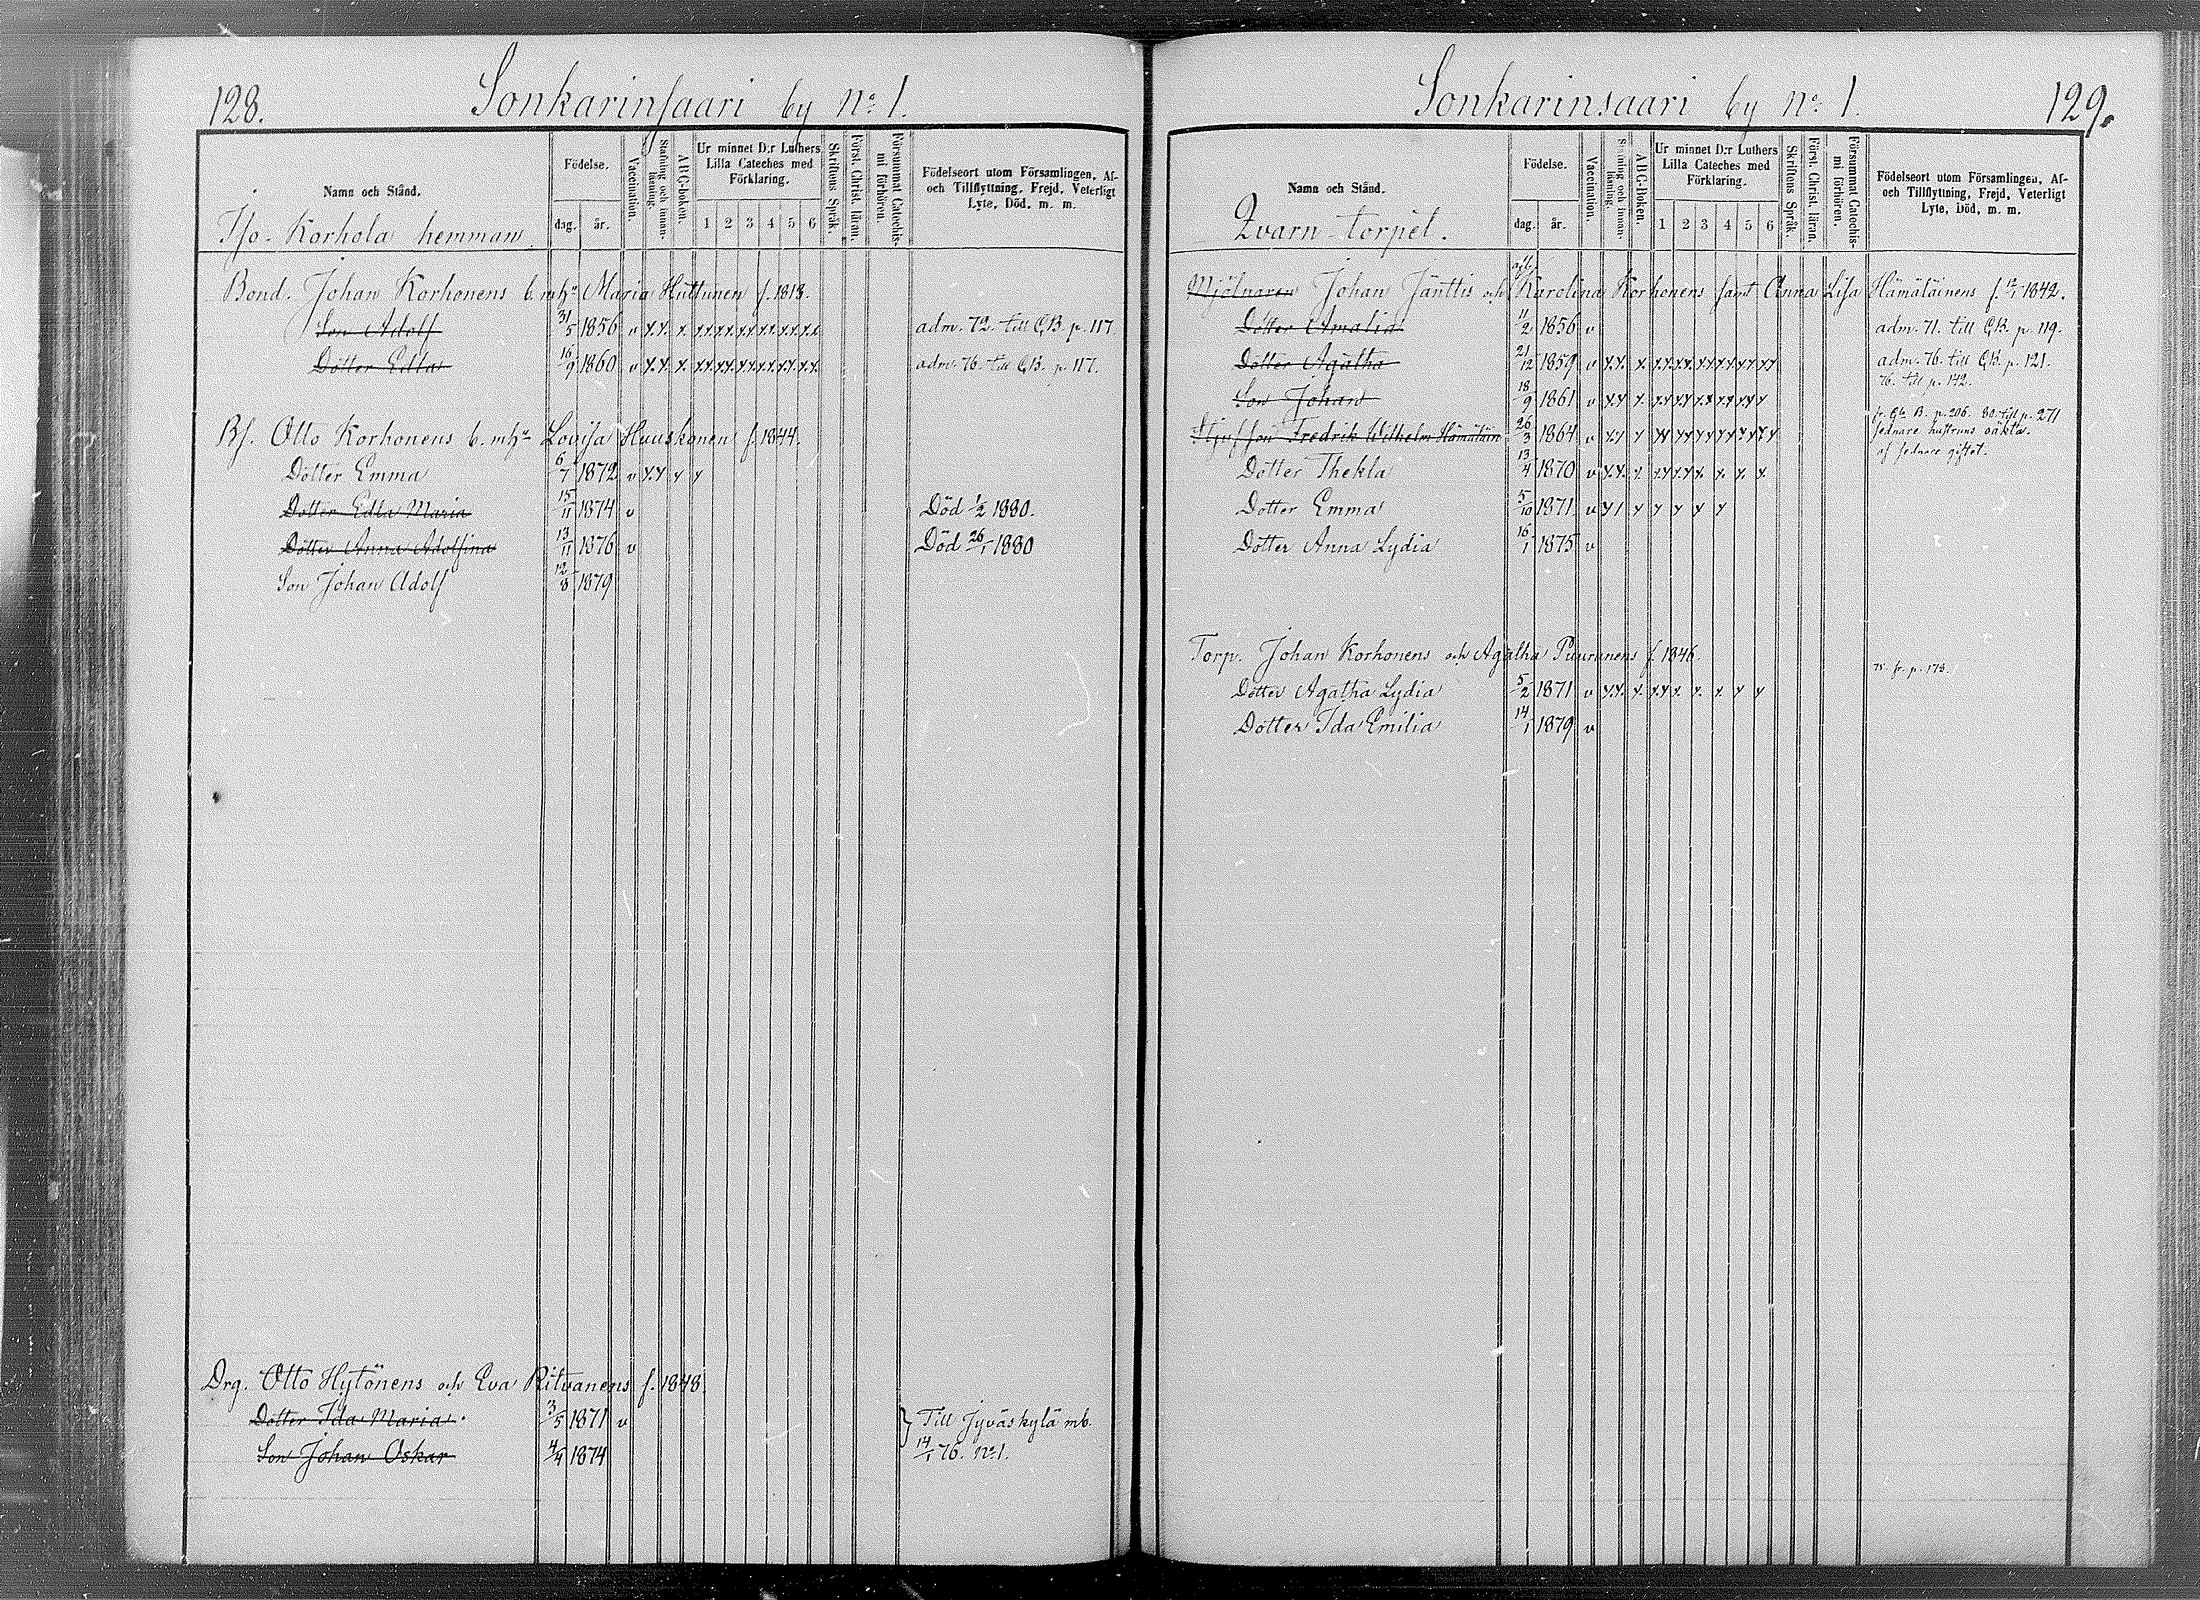 128. Sonkarinsaari by No 1.
Namn och Stånd.
Födelse.
dag. år.
Vaccination.
Stafning och innan-läsning.
ABC-boken.
Ur minnet D:r Luthers Lilla Cateches med Förklaring.
1 2 3 4 5 6
Skriftens Språk.
Först. Christ. läran.
Försummat Catechis-mi förhören.
Födelseort utom Församlingen, Af- och Tillflyttning, Frejd, Veterligt Lyte, Död, m. m.
Iso-Korhola hemman
Bond. Johan Korhonens o. m. hu Maria Huttunen f. 1813.
Son Adolf 31/5 1856 v adm. 72. till C.B. p. 117
Dotter Edla 16/9 1860 v adm. 76. till C.B. p. 117.
Bf. Otto Korhonens o. m. hu Lovisa Huuskonen f. 1844.
Dotter Emma 6/7 1872 v
Dotter Edla Maria 15/11 1874 v Död 1/2 1880.
Dotter Anna Adolfina 13/11 1876 v Död 26/1 1880
Son Johan Adolf 12/8 1879
Drg. Otto Hytönens och Eva Ritvanens f. 1848.
Dotter Ida Maria 3/5 1871 v } Till Jyväskylä mb.
Son Johan Oskar 4/4 1874 14/1 76. No 1.
Sonkarinsaari by No 1. 129.
Namn och Stånd.
Födelse.
dag. år.
Vaccination.
Stafning och innan-läsning.
ABC-boken.
Ur minnet D:r Luthers Lilla Cateches med Förklaring.
1 2 3 4 5 6
Skriftens Språk.
Först. Christ. läran.
Försummat Catechis-mi förhören.
Födelseort utom Församlingen, Af- och Tillflyttning, Frejd, Veterligt Lyte, Död, m. m.
Qvarn-torpet.
Mjölnaren Johan Jänttis och Karolina Korhonens samt Anna Lisa Hämäläinens f. 12/1 1842.
Dotter Amalia 11/2 1856 v adm. 71. till C.B. p. 119.
Dotter Agatha 21/12 1859 v adm. 76. till C.B. p. 121.
Son Johan 18/9 1861 v 76. till p. 142.
Styfson Fredrik Wilhelm Hämäläin 26/3 1864 v fr. B. p. 206. 80. till p. 271
sednare hustruns oäkta.
Dotter Thekla 13/4 1870 v af sednare giftet.
Dotter Emma 5/10 1871 v
Dotter Anna Lydia 16/1 1875 v
Torp. Johan Korhonens och Agatha Puurunens f. 1846. 75. fr. p. 173.
Dotter Agatha Lydia 5/2 1871 v
Dotter Ida Emilia 14/1 1879 v